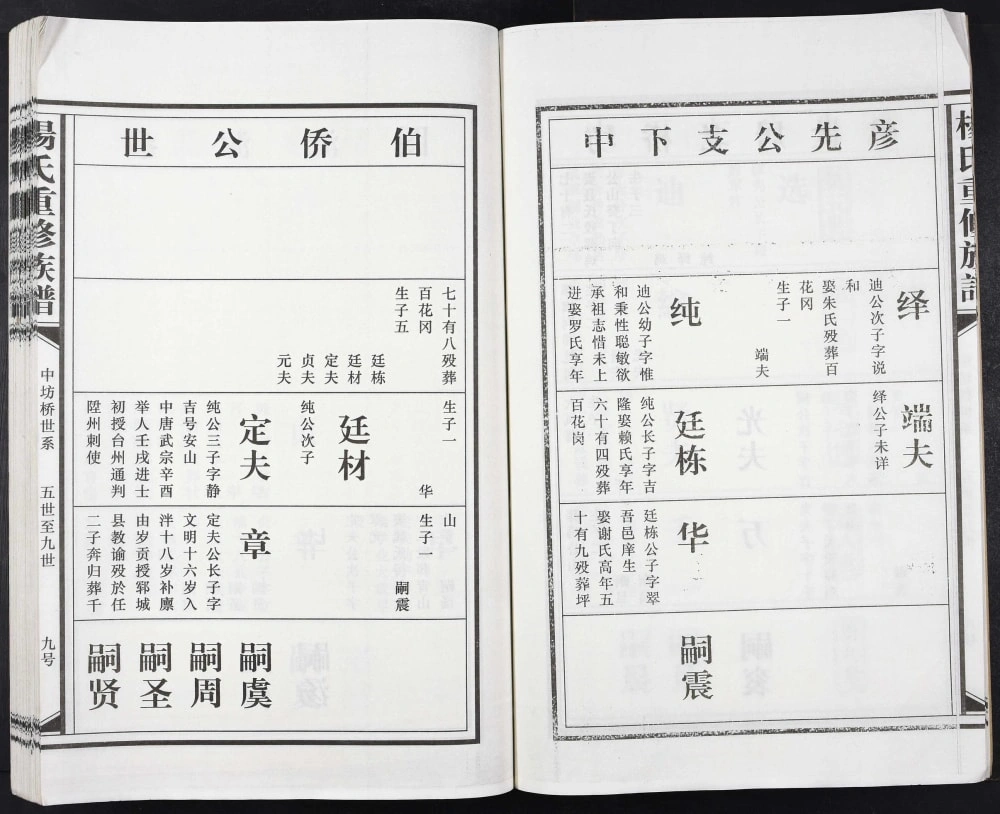 杨氏重修族谱
彦先公支下中
绎
迪公次子字说
和
娶朱氏殁葬百
花冈
生子一
端夫
纯
迪公幼子字惟
和秉性聪敏欲
承祖志惜未上
进娶罗氏享年
端夫
绎公子未详
廷栋
纯公长子字吉
隆娶赖氏享年
六十有四殁葬
百花岗
华
廷栋公子字翠
吾邑庠生
娶谢氏高年五
十有九殁葬坪
嗣震
伯侨公世
七十有八殁葬
百花冈
生子五
廷栋
廷材
定夫
贞夫
元夫
生子一
华
廷材
纯公次子
定夫
纯公三子字静
吉号安山
中唐武宗辛酉
举人壬戌进士
初授台州通判
陞州刺使
山
生子一
嗣震
章
定夫公长子字
文明十六岁入
泮十八岁补廪
由岁贡授郓城
县教谕殁於任
二子奔归葬千
嗣虞
嗣周
嗣圣
嗣贤
杨氏重修族谱
中坊桥世系
五世至九世
九号